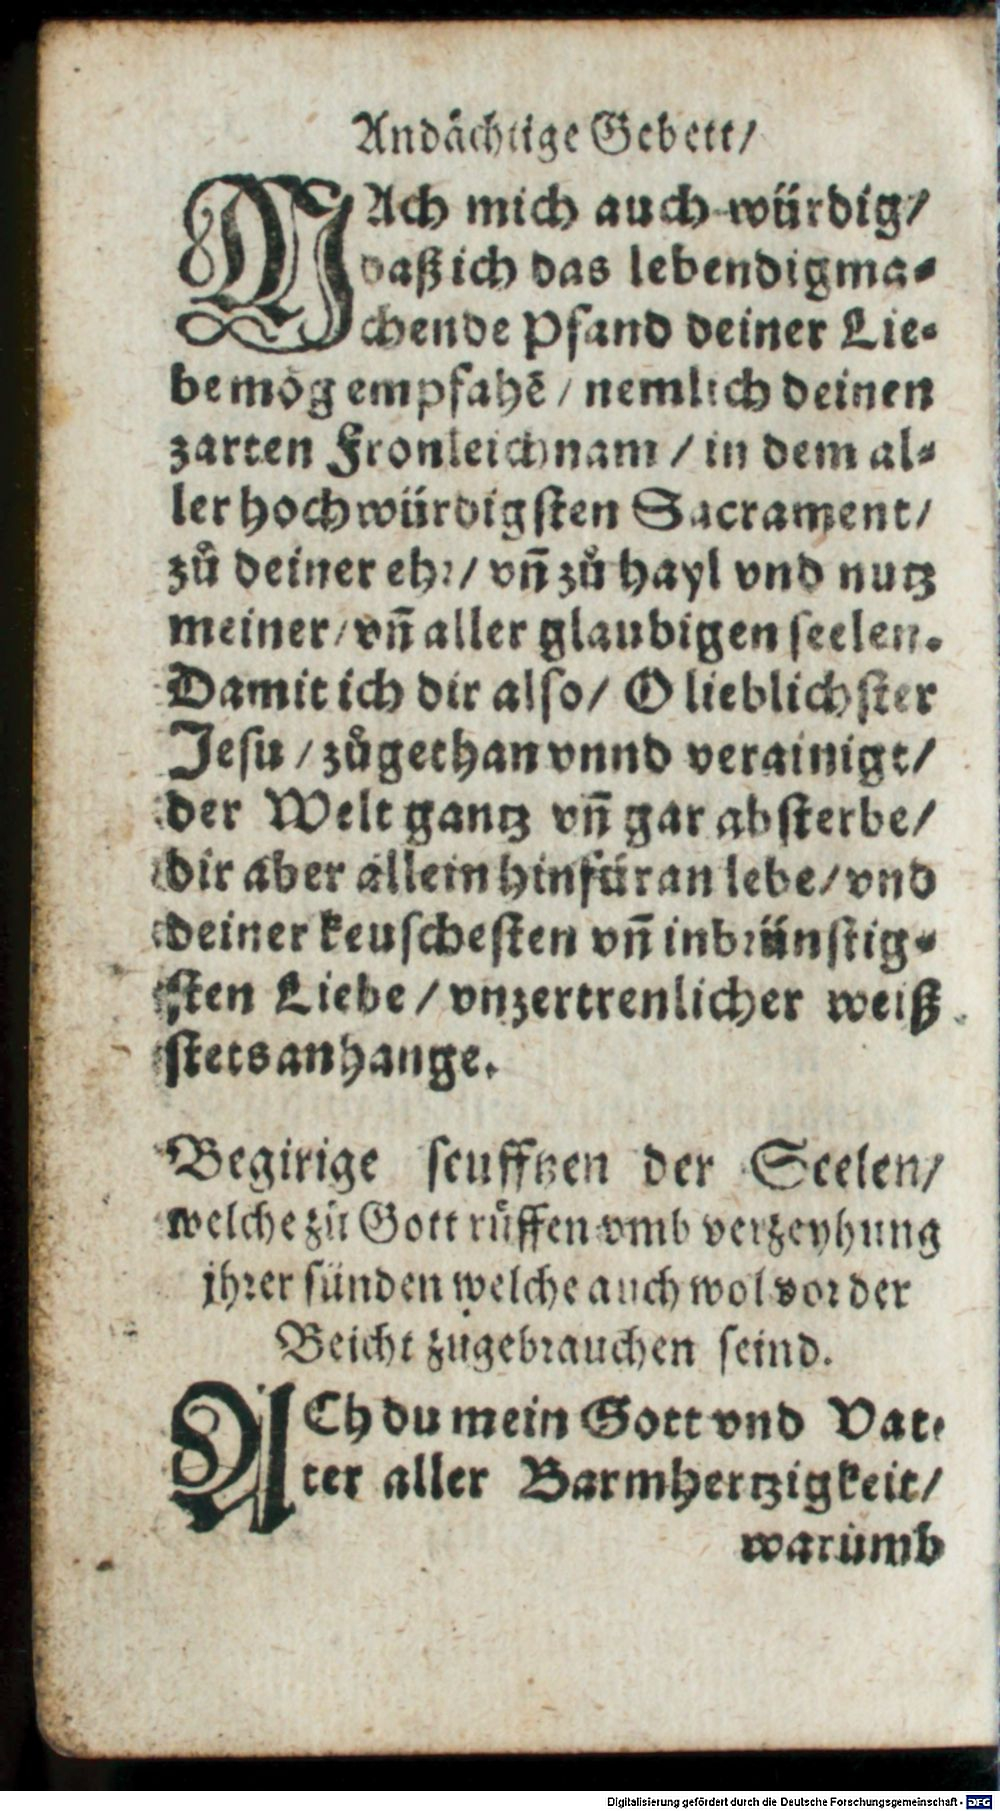 Andächtige Gebett/
MAch mich auch würdig/
daß ich das lebendigma-
chende Pfand deiner Lie-
be mög empfahē / nemlich deinen
zarten Fronleichnam / in dem al-
ler hochwürdigsten Sacrament/
zů deiner ehr/ vñ zů hayl vnd nutz
meiner/ vñ aller glaubigen seelen.
Damit ich dir also/ O lieblichster
Jesu / zůgethan vnnd verainigt/
der Welt gantz vñ gar absterbe/
dir aber allein hinfüran lebe/ vnd
deiner keuschesten vñ inbrünstig-
sten Liebe / vnzertrenlicher weiß
stets anhange.
Begirige seufftzen der Seelen/
welche zů Gott růffen vmb verzeyhung
jhrer sünden welche auch wol vor der
Beicht zůgebrauchen seind.
ACh du mein Gott vnd Vat-
ter aller Barmhertzigkeit/
warumb
Digitalisierung gefördert durch die Deutsche Forschungsgemeinschaft - DFG